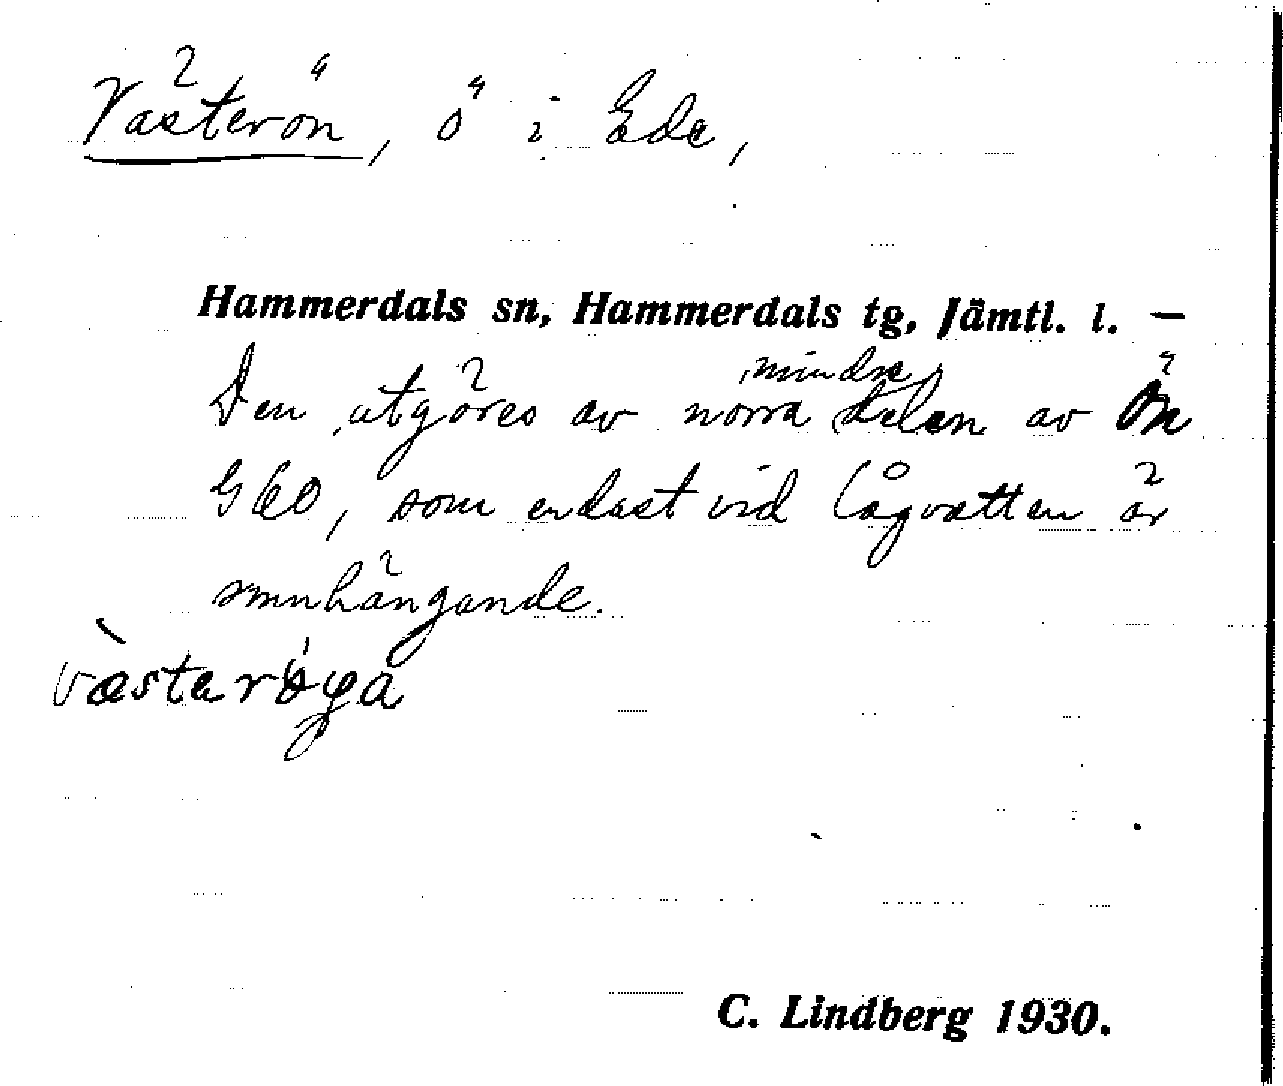 Västerön, ö i Ede,
Hammerdals sn, Hammerdals tg, Jämtl. l. —
Den utgöres av norra, mindre, delen av Ön
G60, som endast vid lågvatten är
smnhängande.
C. Lindberg 1930.